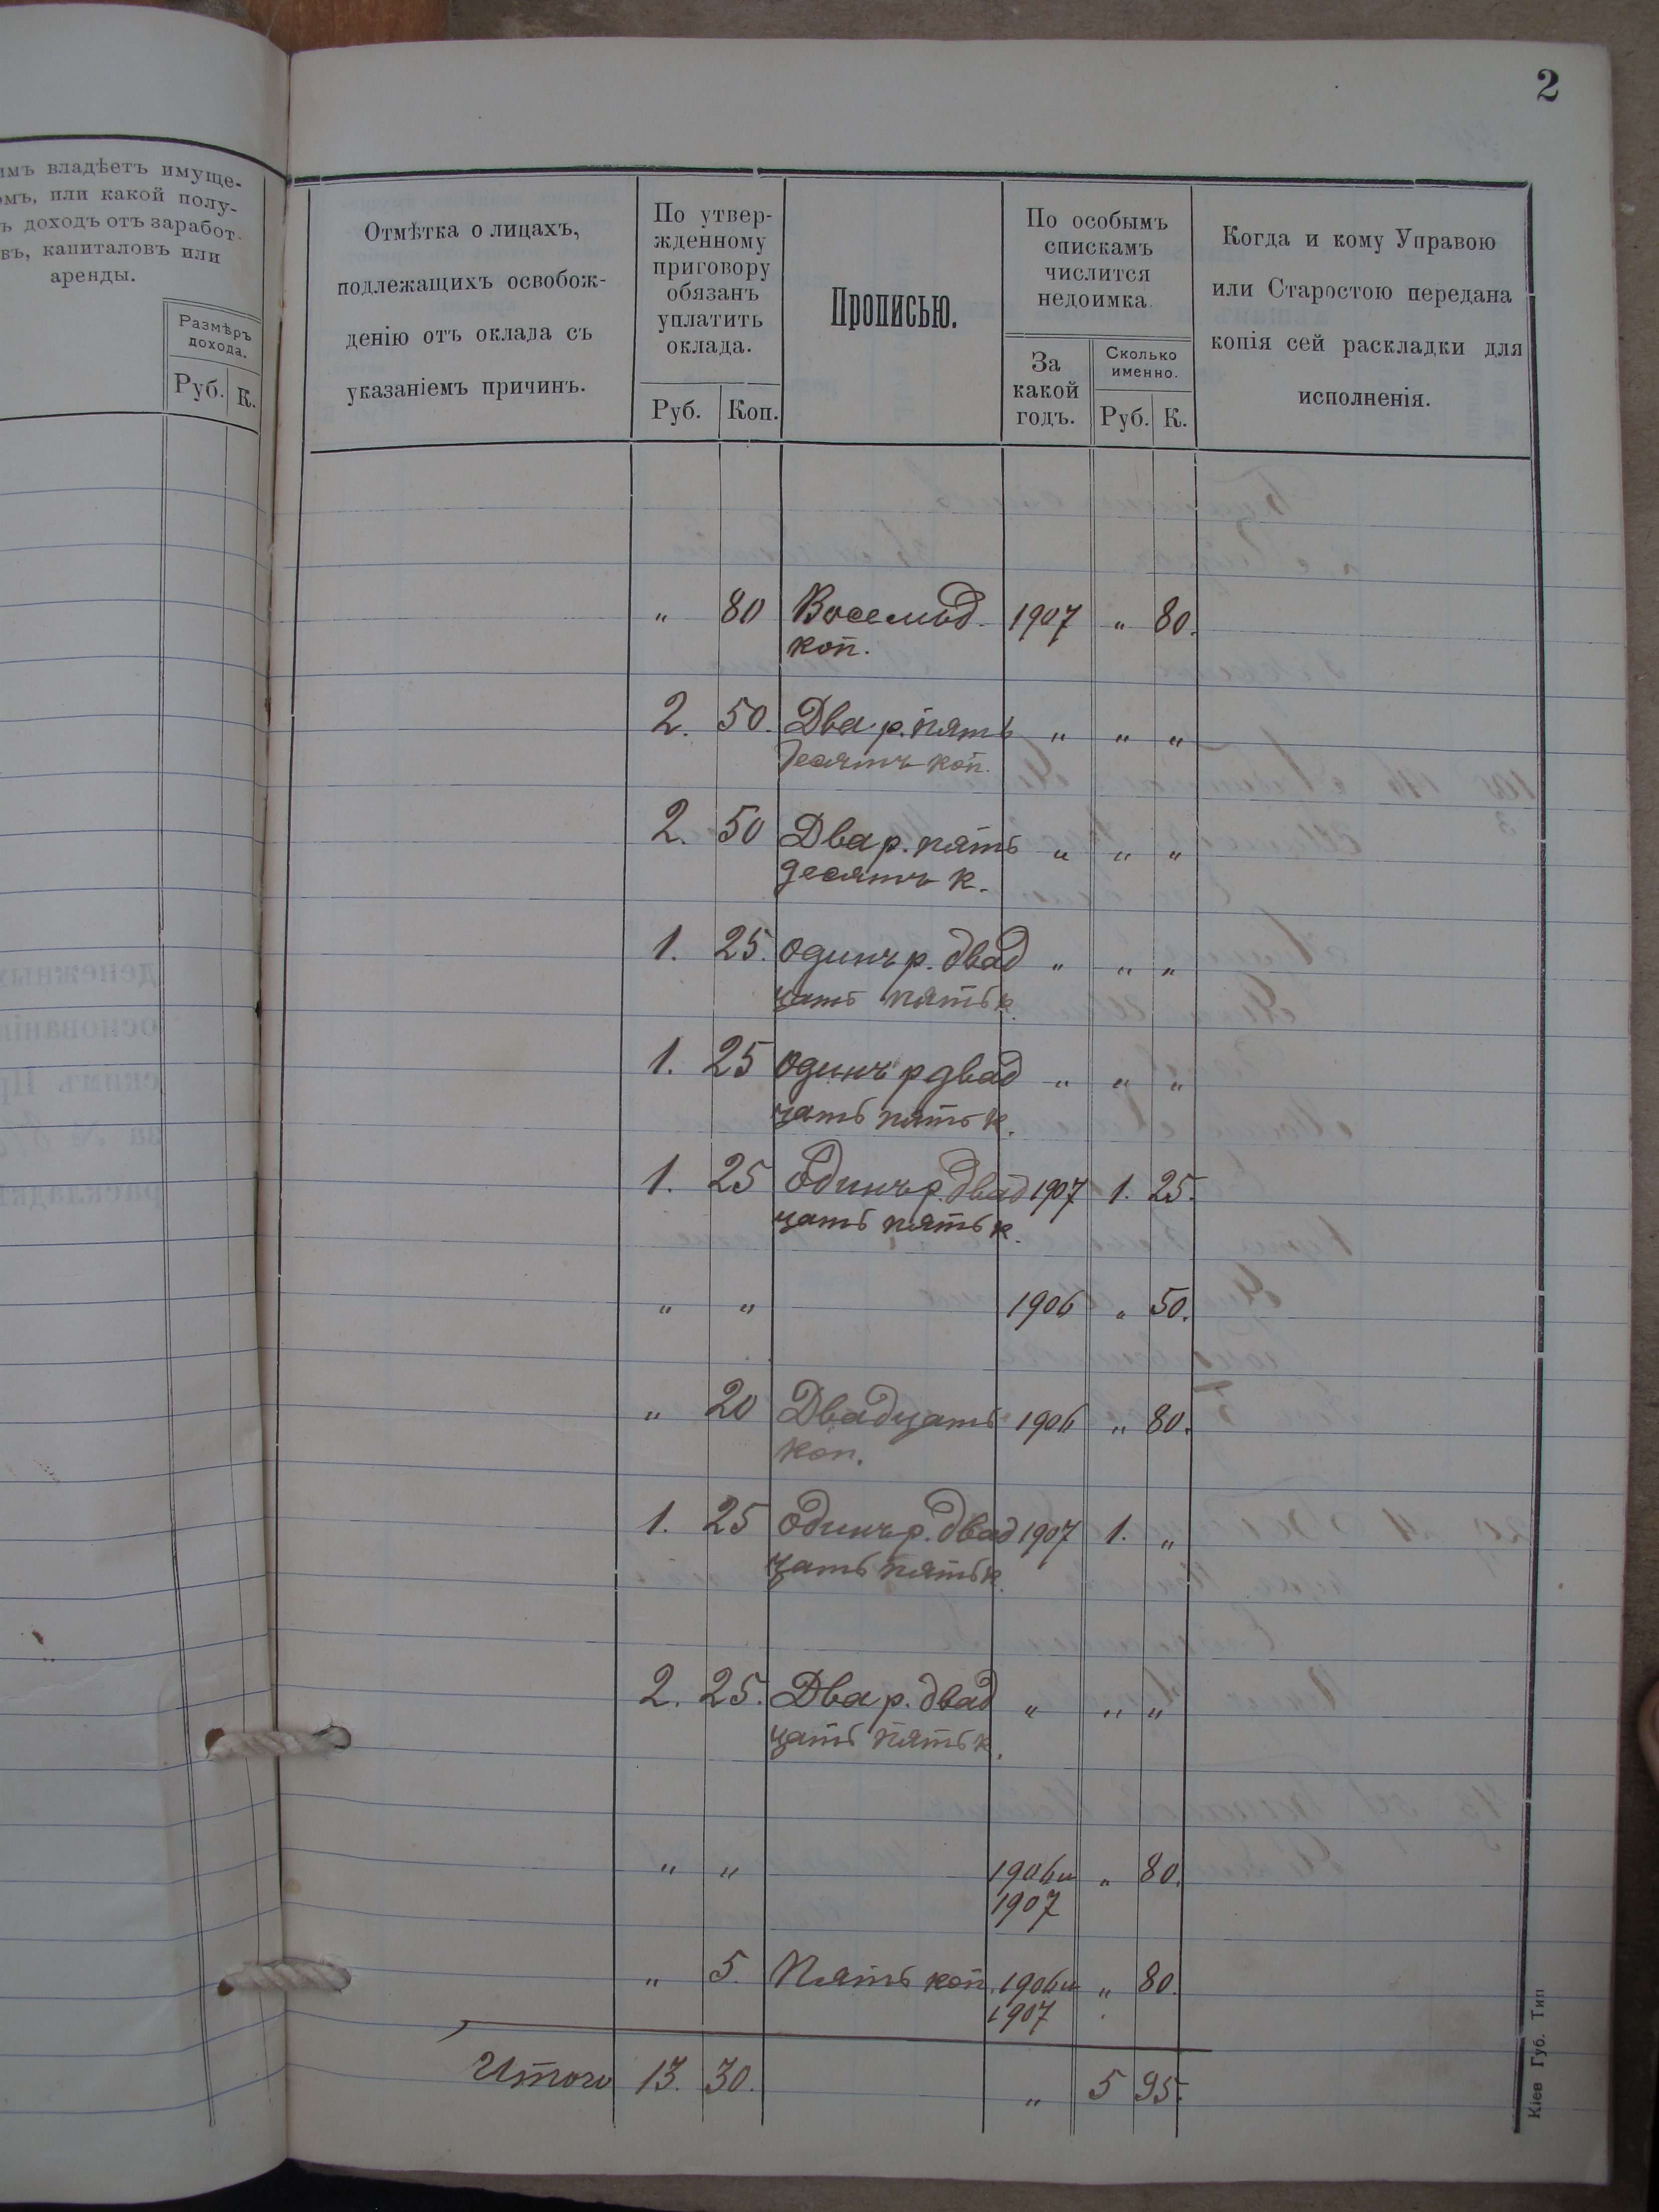 2
имъ владѣетъ имуще-
омъ, или какой полу-
ъ доходъ отъ заработ.
въ, капиталовъ или
аренды.
Размѣръ
дохода.
Руб. К.
Отмѣтка о лицахъ,
подлежащихъ освобож-
денію отъ оклада съ
указаніемъ причинъ.
По утвер-
жденному
приговору
обязанъ
уплатить
оклада.
Руб. Коп.
Прописью.
По особымъ
спискамъ
числится
недоимка.
За
какой
годъ.
Сколько
именно.
Руб. К.
Когда и кому Управою
или Старостою передана
копія сей раскладки для
исполненія.
" 80 Восемьд. 1907 " 80.
коп.
2. 50. Два р. пять " " "
десятъ коп.
2. 50 Два р. пять " " "
десятъ к.
1. 25. одинъ р. двад " " "
цать пять к.
1. 25 одинъ р двад " " "
цать пять к.
1. 25 одинъ р. двад 1907 1. 25.
цать пять к.
" " 1906 " 50.
" 20 Двадцать 1906 " 80.
коп.
1. 25 одинъ р. двад 1907 1. "
цать пять к.
2. 25. Два р. двад " " "
цать пять к.
" " 1906 и " 80.
1907
" 5. Пять коп. 1906 и " 80.
1907
Итого 13. 30. " 5 95.
Кіев Губ. Тип